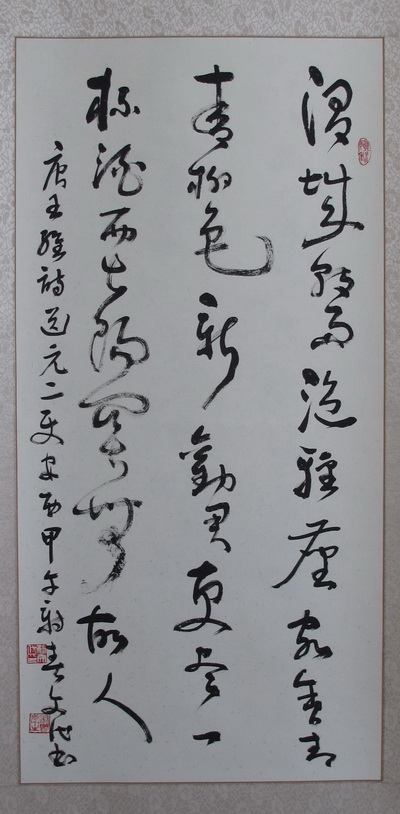 渭城朝雨浥轻尘客舍青
青柳色新劝君更尽一
杯酒西出阳关无故人
唐王维诗送元二使安西甲午新春文 书